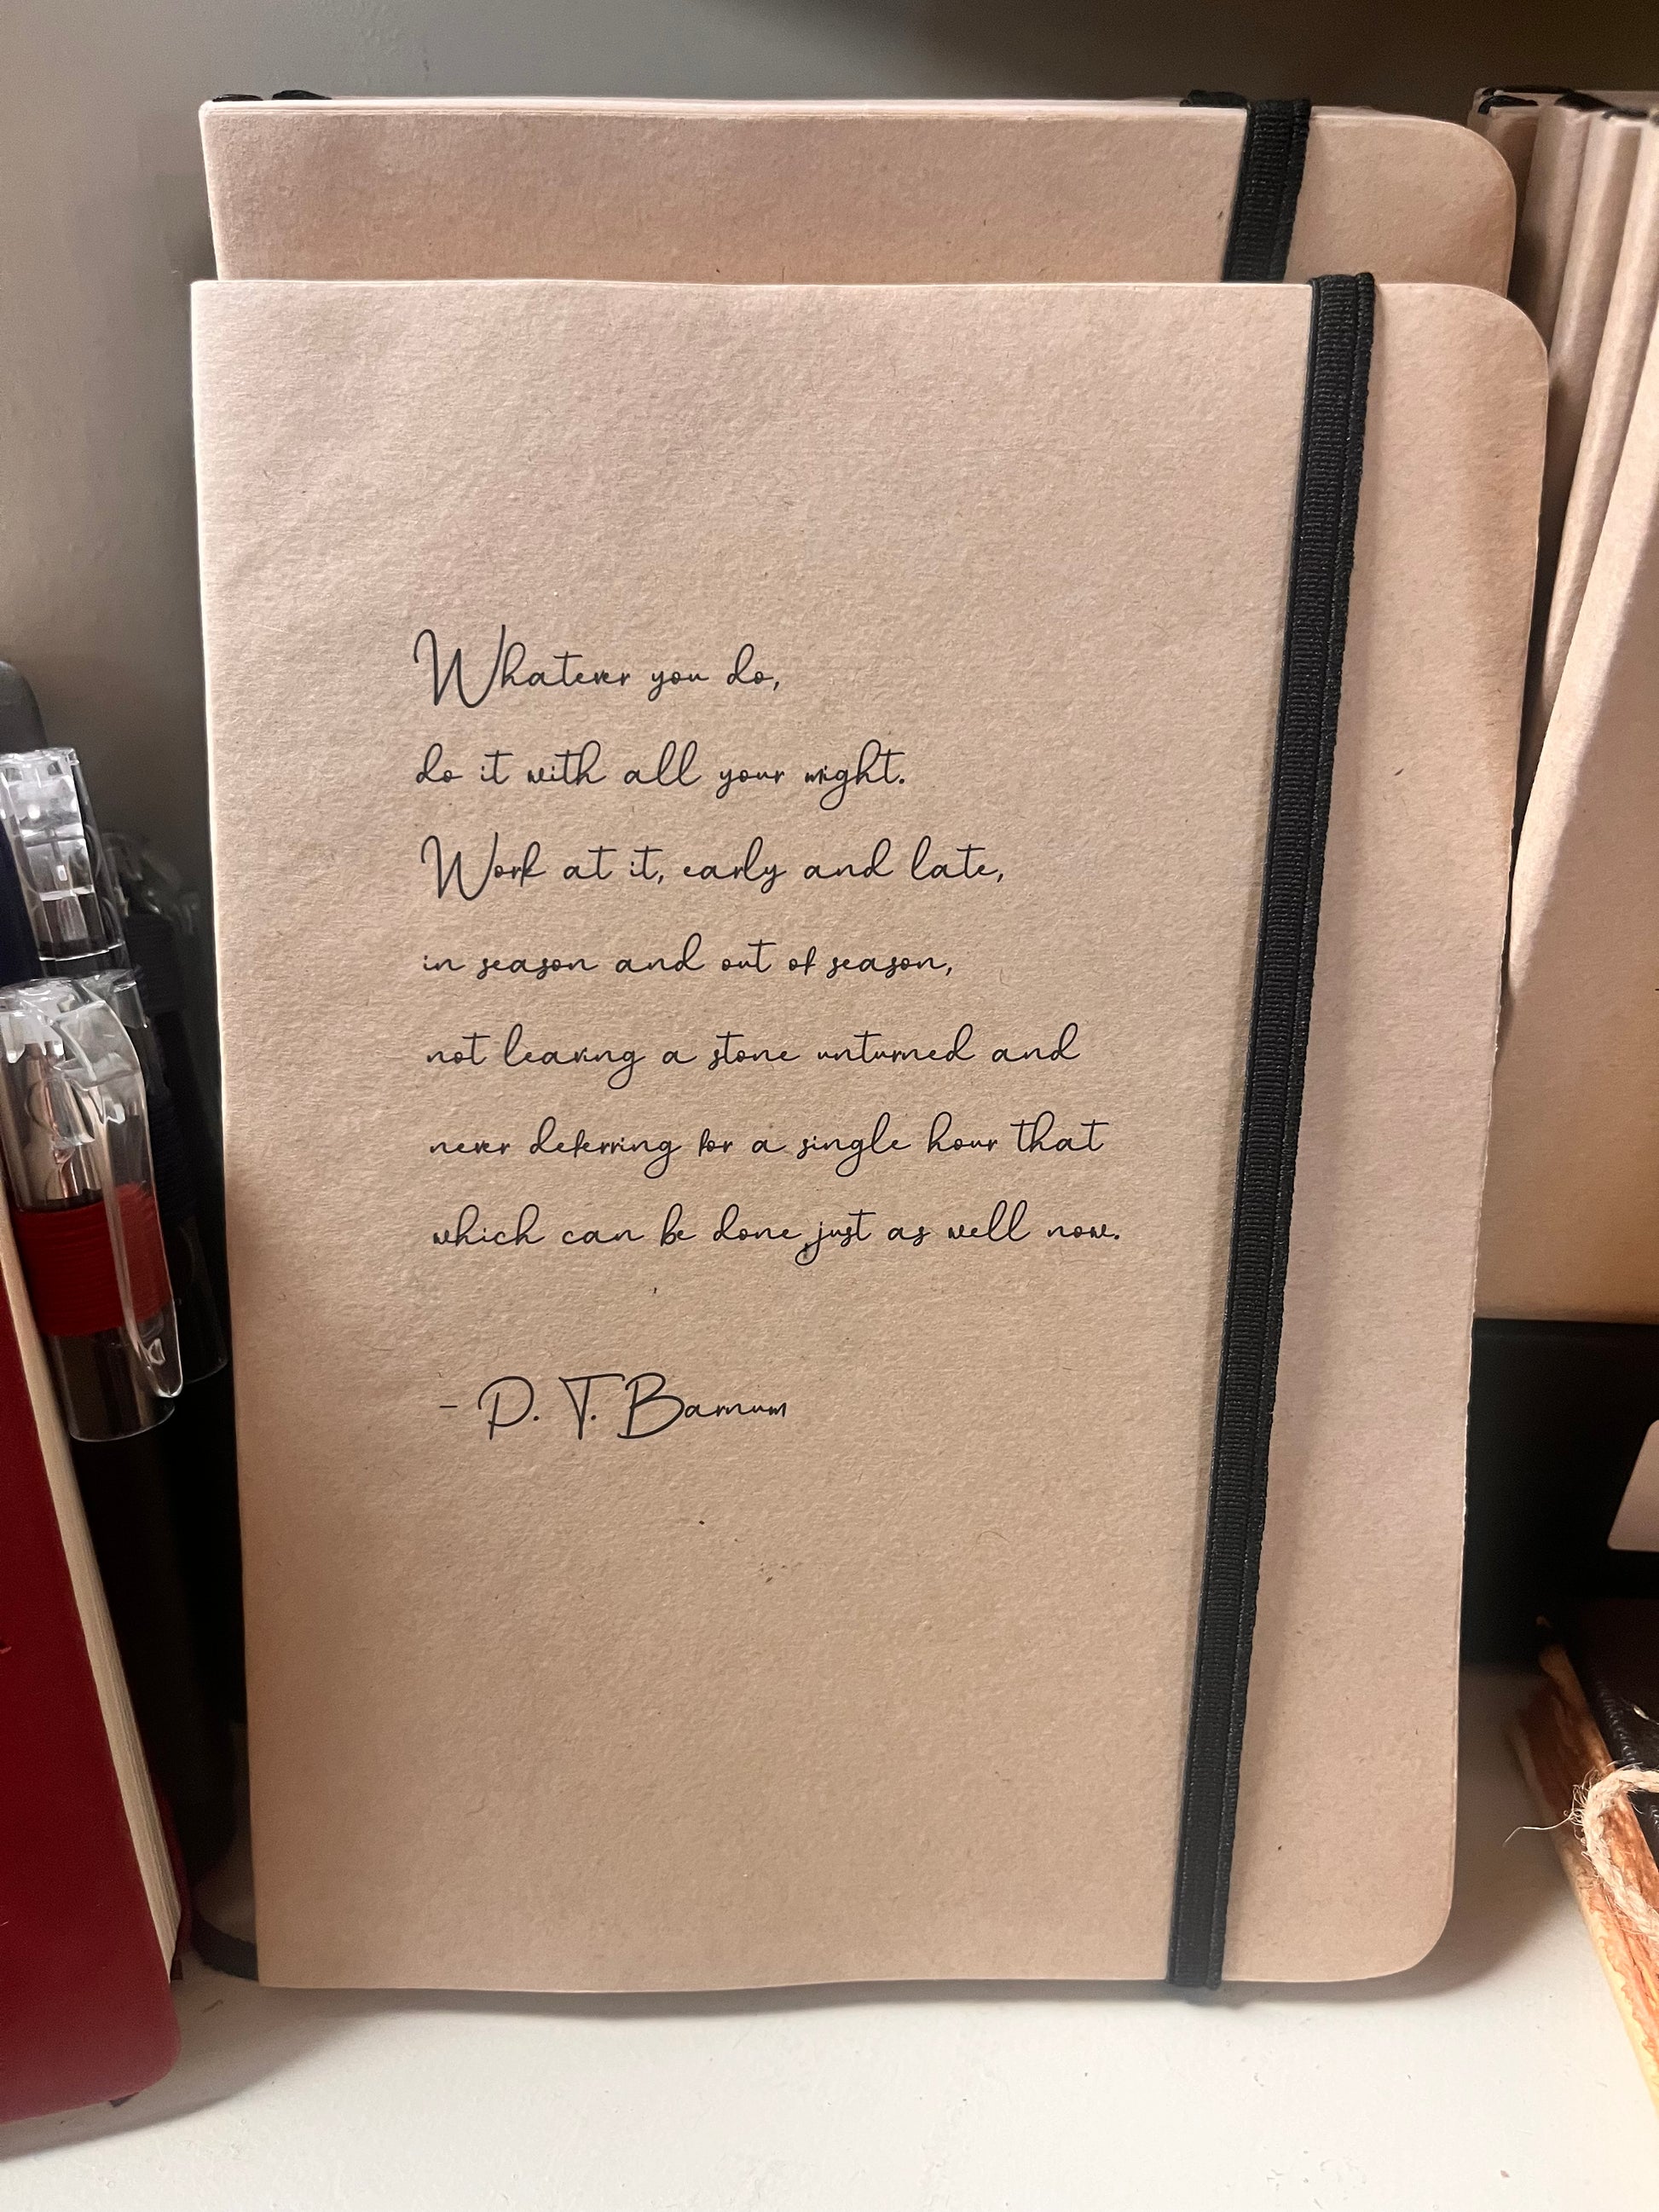 Whatever you do,
do it with all your might.
Work at it, early and late,
in season and out of season,
not leaving a stone unturned and
never deferring for a single hour that
which can be done just as well now.
- P. T. Barnum